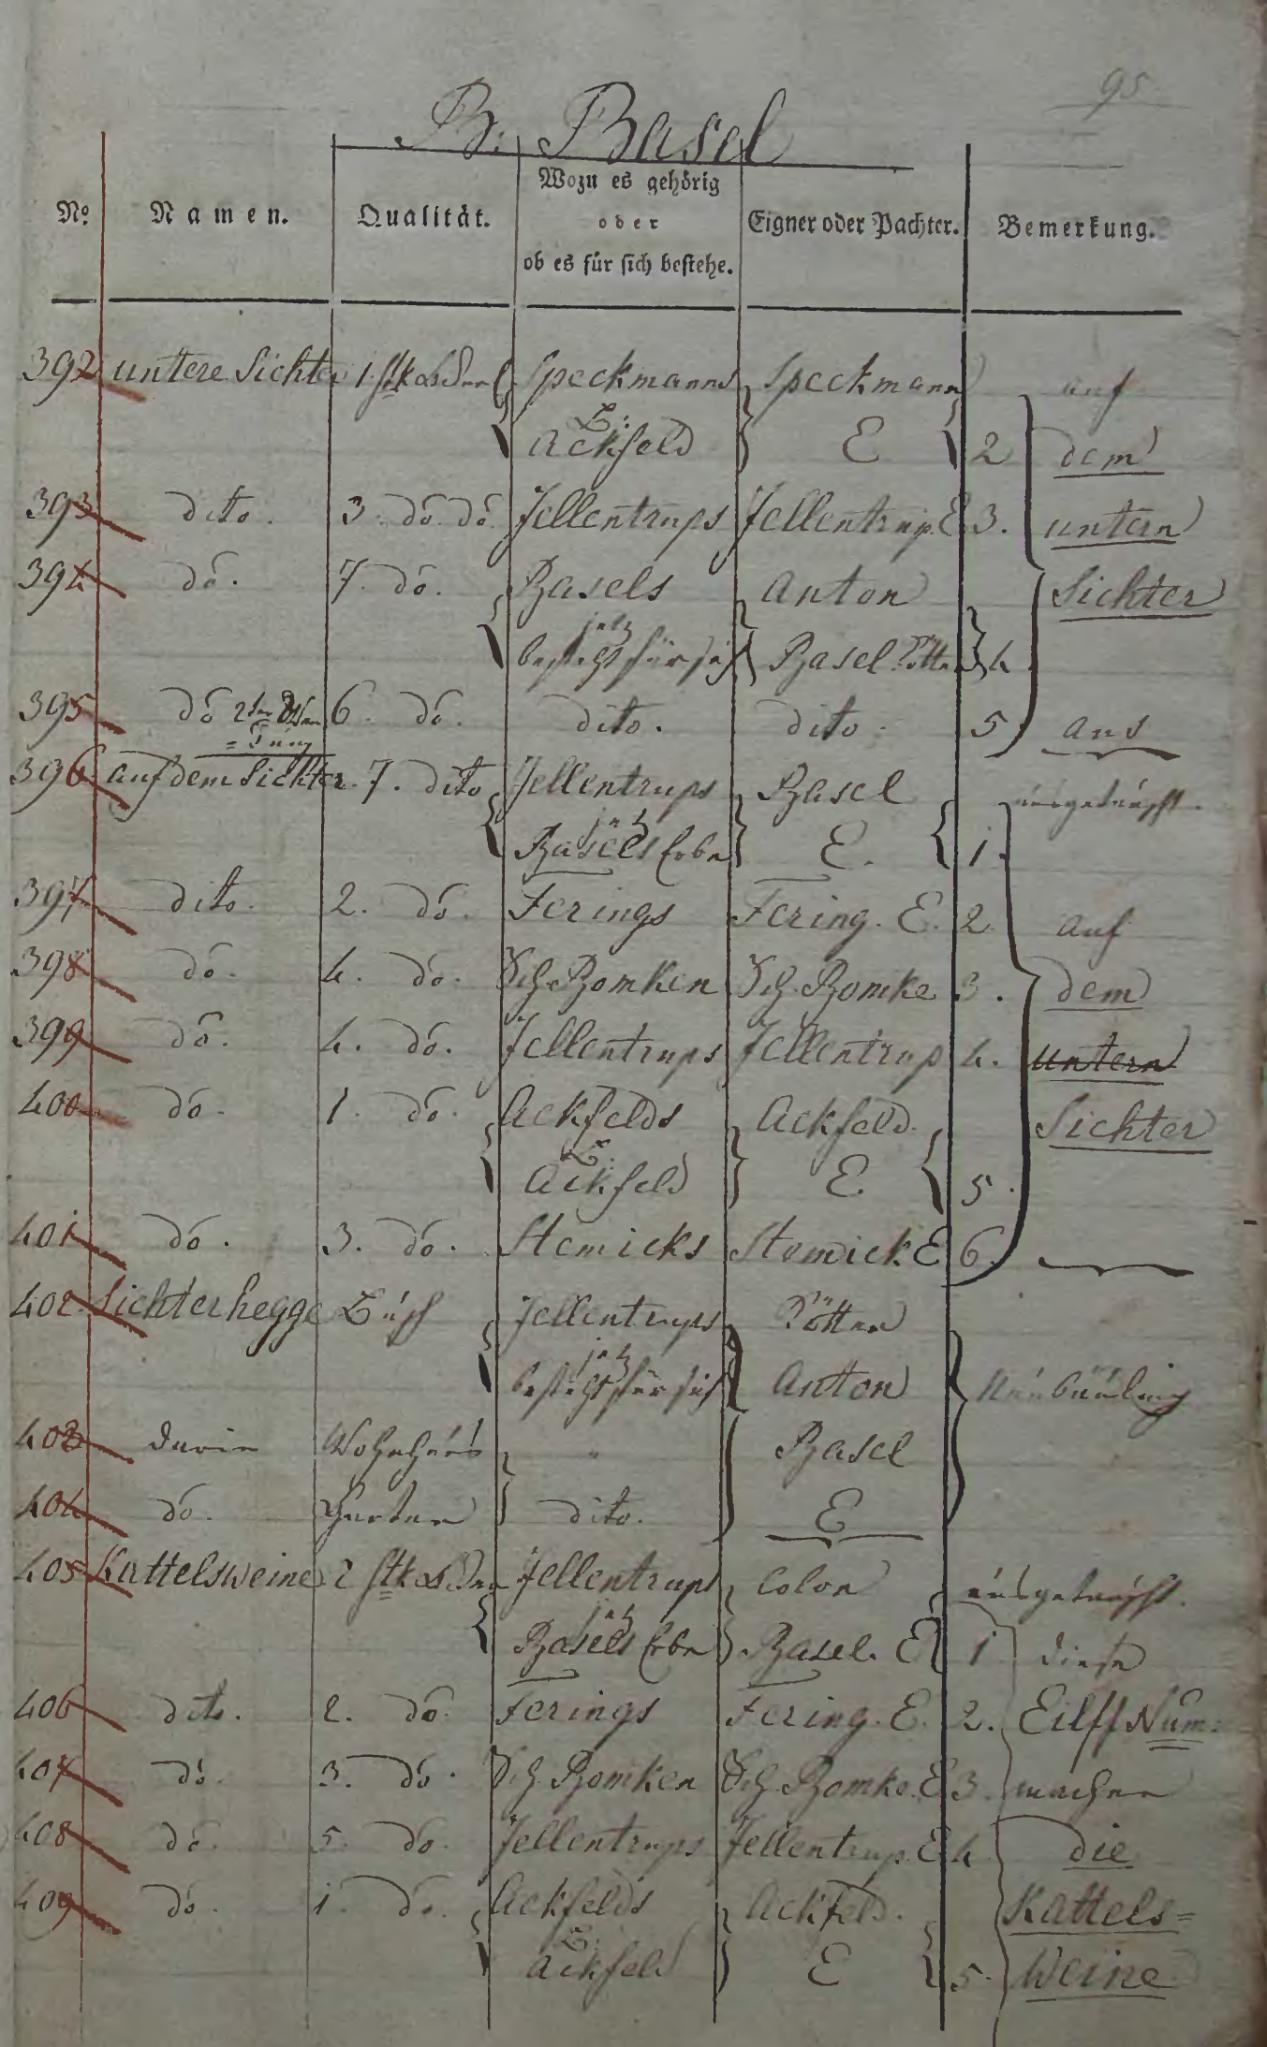 95
B. Basel
No. Namen. Qualität. Wozu es gehörig oder ob es für sich bestehe. Eigner oder Pachter. Bemerkung.
392 untere Sichter 1. Stk Speckmanns Speckmann auf
Z: Ackfeld E 2 dem
393 dito. 3. do do. Jellentrups Jellentrup. E 3. untern
394 do. 7. do. Basels Anton Sichter
jetz besteht für sich Basel Pötter 4
395 do 6. do. dito. dito. 5. aus
396 auf dem Sichter. 7. dito Jellentrups Basel ausgetauscht.
jetz Basels Erbe E. 1.
397 dito. 2. do. Ferings Fering. E. 2. auf
398 do. 4. do. Sch. Bomken Sch. Bomke 3. dem
399 do. 4. do. Jellentrups Jellentrup 4. untern
400 do. 1. do. Ackfelds Ackfeld. Sichter
Z: Ackfeld E 5.
401 do. 3. do. Stemicks Stemick E 6.
402. Sichterhegge Busch Jellentrups Pötter
jetz besteht für sich Anton Neubäuling
403 darin Wohnhaus " Basel
404 do. Garten dito. E
405 Kattelsweine 2 Stk Jellentrups Colon ausgetauscht.
jetz Basels Erbe Basel. E 1 diese
406 dito. 2. do. Ferings Fering. E. 2. Eilff Num:
407 do. 3. do. Sch. Bomken Sch. Bomke. E 3. machen
408 do. 5. do. Jellentrups Jellentrup. E 4. die
409 do. 1. do. Ackfelds Ackfeld. Kattels=
Z: Ackfeld E 5. Weine